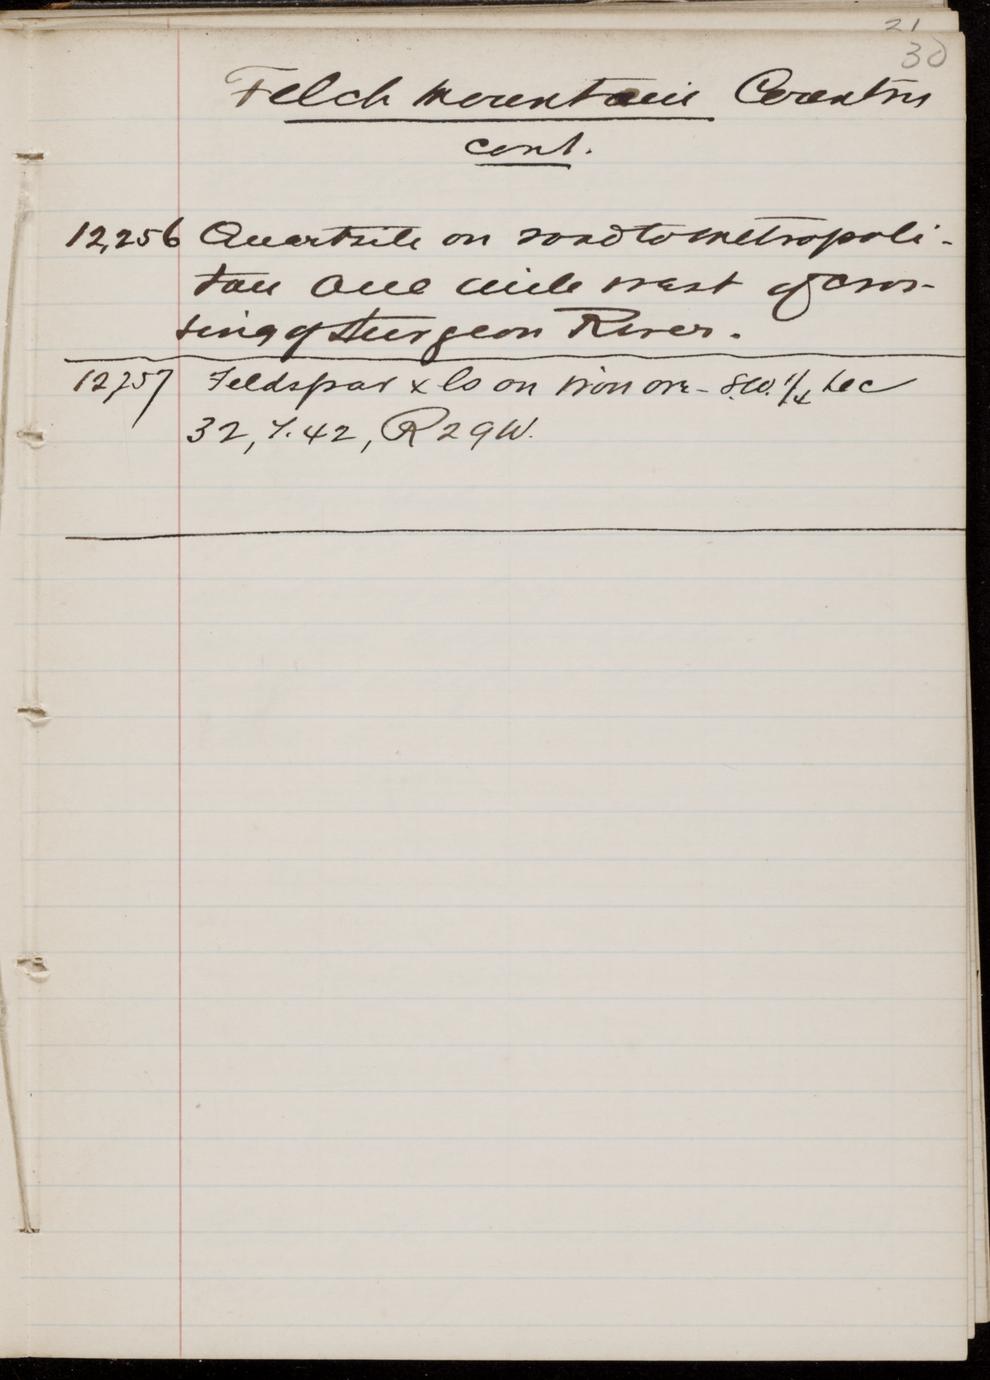 21
30
Felch Mountain Country
cont.
12,256 Quartzite on road to Metropoli-
tan one mile west of cros-
sing of Sturgeon River.
12,257 Feldspar xls on iron ore - S.W. 1/4 Sec
32, T. 42, R 29 W.